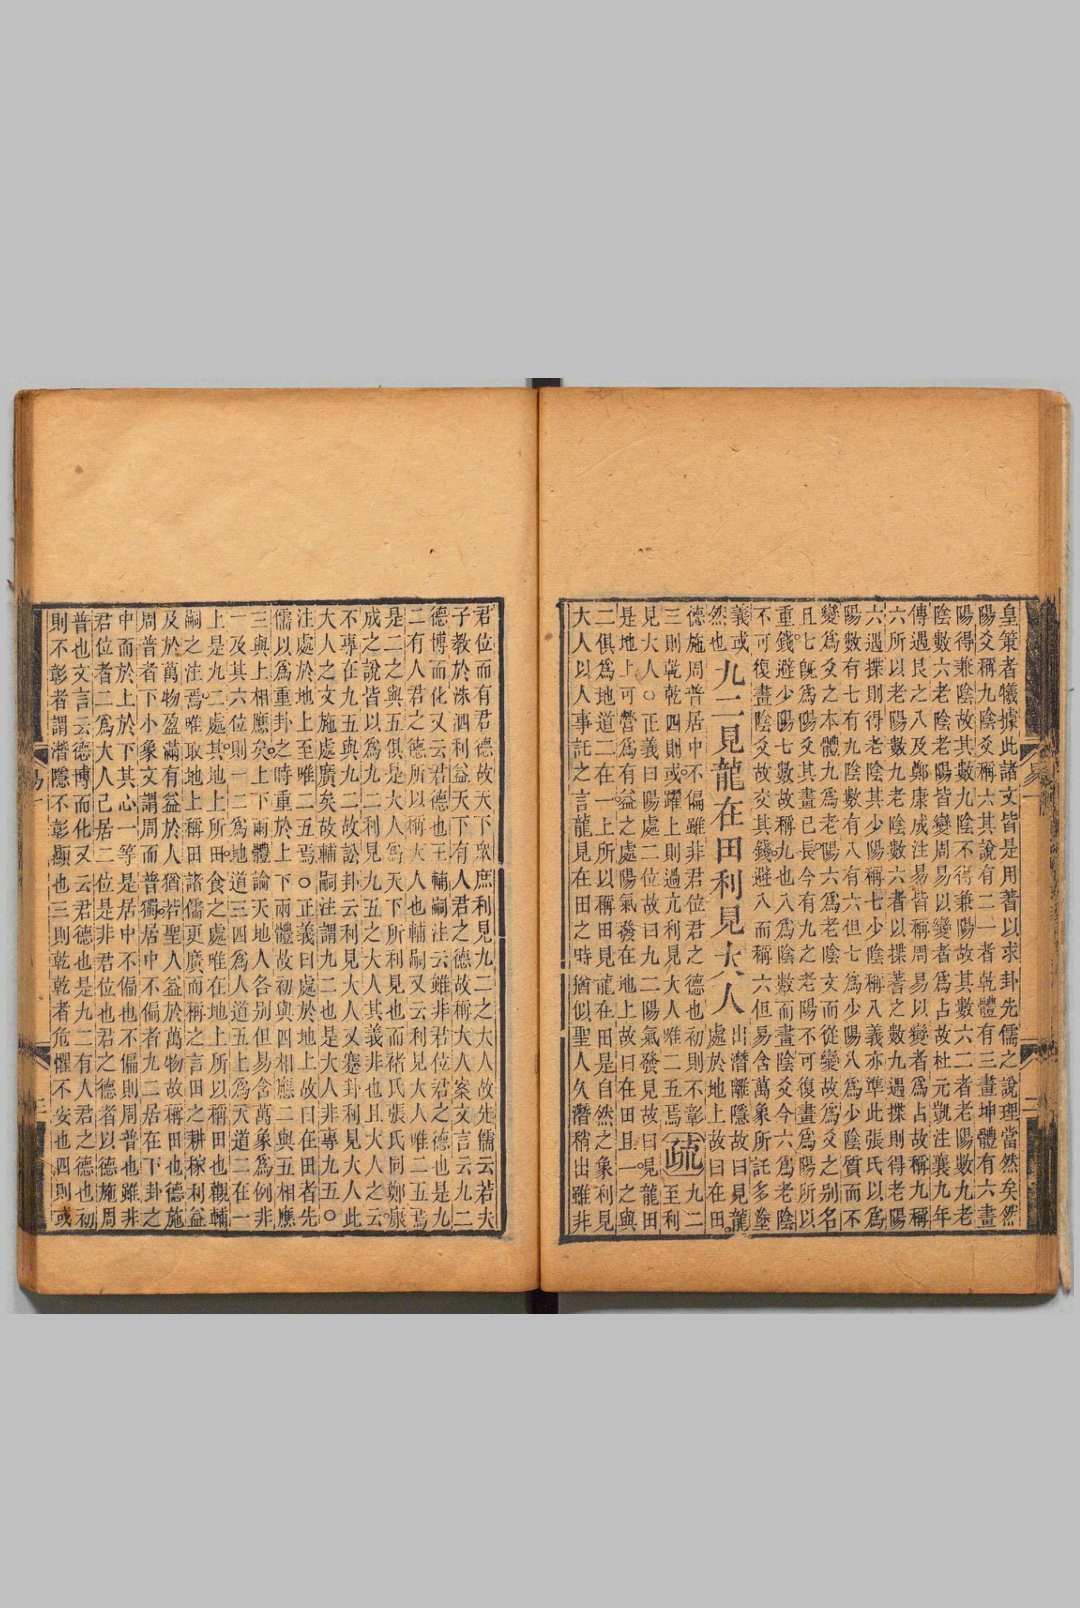 皇策者犧據此諸文皆是用蓍以求卦先儒之說理當然矣然
陽爻稱九陰爻稱六其說有二一者乾體有三畫坤體有六畫
陽得兼陰故其數九陰不得兼陽故其數六二者老陽數九老
陰數六老陰老陽皆變周易以變者爲占故杜元凱注襄九年
傳遇艮之八及鄭康成注易皆稱周易以變者爲占故稱九稱
六所以老陽數九老陰數六者以揲蓍之數九遇揲則得老陽
六遇揲則得老陰其少陽稱七少陰稱八義亦準此張氏以爲
陽數有七有九陰數有八有六但七爲少陽八爲少陰質而不
變爲爻之本體九爲老陽六爲老陰文而從變故爲爻之别名
且七旣爲陽爻其畫已長今有九之老陽不可復畫爲陽所以
重錢避少陽七數故稱九也八爲陰數而畫陰爻今六爲老陰
不可復畫陰爻故交其錢避八而稱六但易含萬象所託多塗
義或
然也
九二見龍在田利見大人
出潛離隱故曰見龍
處於地上故曰在田
德施周普居中不偏雖非君位君之德也初則不彰
三則乾乾四則或躍上則過亢利見大人唯二五焉
疏
九二
至利
見大人○正義曰陽處二位故曰九二陽氣發見故曰見龍田
是地上可營爲有益之處陽氣發在地上故曰在田且一之與
二俱爲地道二在一上所以稱田見龍在田是自然之象利見
大人以人事託之言龍見在田之時猶似聖人久潛稍出雖非
易一
二
君位而有君德故天下衆庶利見九二之大人故先儒云若夫
子教於洙泗利益天下有人君之德故稱大人案文言云九二
德博而化又云君德也王輔嗣注云雖非君位君之德也是九
二有人君之德所以稱大人也輔嗣又云利見大人唯二五焉
是二之與五俱是大人爲天下所利見也而褚氏張氏同鄭康
成之說皆以爲九二利見九五之大人其義非也且大人之云
不專在九五與九二故訟卦云利見大人又蹇卦利見大人此
大人之文施處廣矣故輔嗣注謂九二也是大人非專九五○
注處於地上至唯二五焉○正義曰處於地上故曰在田者先
儒以爲重卦之時重於上下兩體故初與四相應二與五相應
三與上相應矣上下兩體論天地人各别但易含萬象爲例非
一及其六位則一二爲地道三四爲人道五上爲天道二在一
上是九二處其地上所田食之處唯在地上所以稱田也觀輔
嗣之注焉唯取地上稱田諸儒更廣而稱之言田之耕稼利益
及於萬物盈滿有益於人猶若聖人益於萬物故稱田也德施
周普者下小象文謂周而普獨居中不偏者九二居在下卦之
中而於上於下其心一等是居中不偏也不偏則周普也雖非
君位者二爲大人已居二位是非君位也君之德者以德施周
普也文言云德博而化又云君德也是九二有人君之德也初
則不彰者謂潛隱不彰顯也三則乾乾者危懼不安也四則或
易一
三